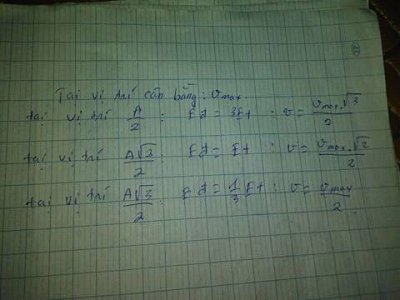 Tại vị trí cân bằng: vmax
tại vị trí A/2 : Eđ = 3Et : v = vmax.√3/2
tại vị trí A√3/2 : Eđ = Et : v = vmax.√2/2
tại vị trí A√3/2 : Eđ = 1/3 Et : v = vmax/2